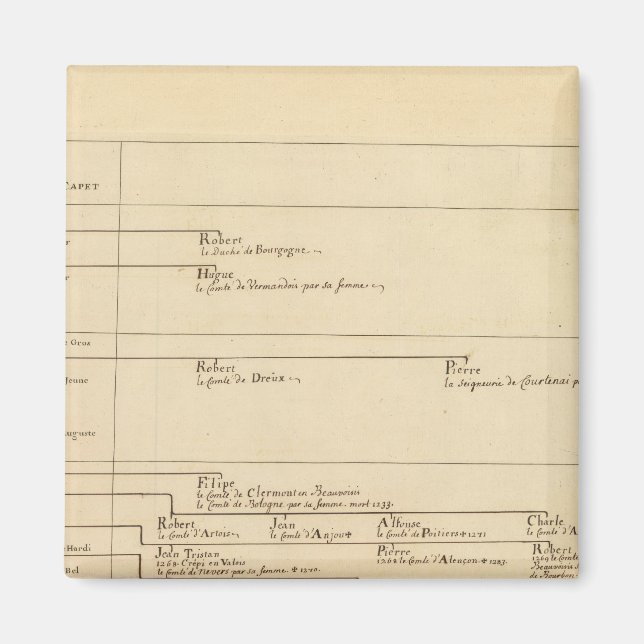 CAPET
Robert
le Duché de Bourgogne
Hugue
le Comté de Vermandois par sa femme
Gros
Robert
le Comté de Dreux
Pierre
la Seigneurie de Courtenai
Jeune
uguste
Filipe
le Comté de Clermont en Beauvoisis
le Comté de Bologne par sa femme. mort 1233.
Robert
le Comté d'Artois
Jean
le Comté d'Anjou ✝
Alfonse
le Comté de Poitiers ✝ 1271
Charle
le Comté d'A
Hardi
Jean Tristan
1268. Crépi en Valois
le Comté de Nevers par sa femme. ✝ 1270.
Pierre
1268 le Comté d'Alençon. ✝ 1283.
Robert
1269 le Comté
Beauvoisis
de Bourbon
Bel